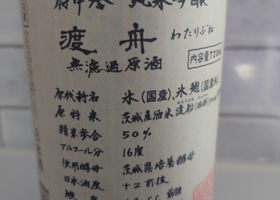 府中誉 純米吟醸
渡舟 わたりぶね
無濾過原酒 内容量720ml
原材料名 米(国産)、米麹(国産米)
原料米 茨城産酒米渡船
精米歩合 50%
アルコール分 16度
使用酵母 茨城県培養酵母
日本酒度 +2前後